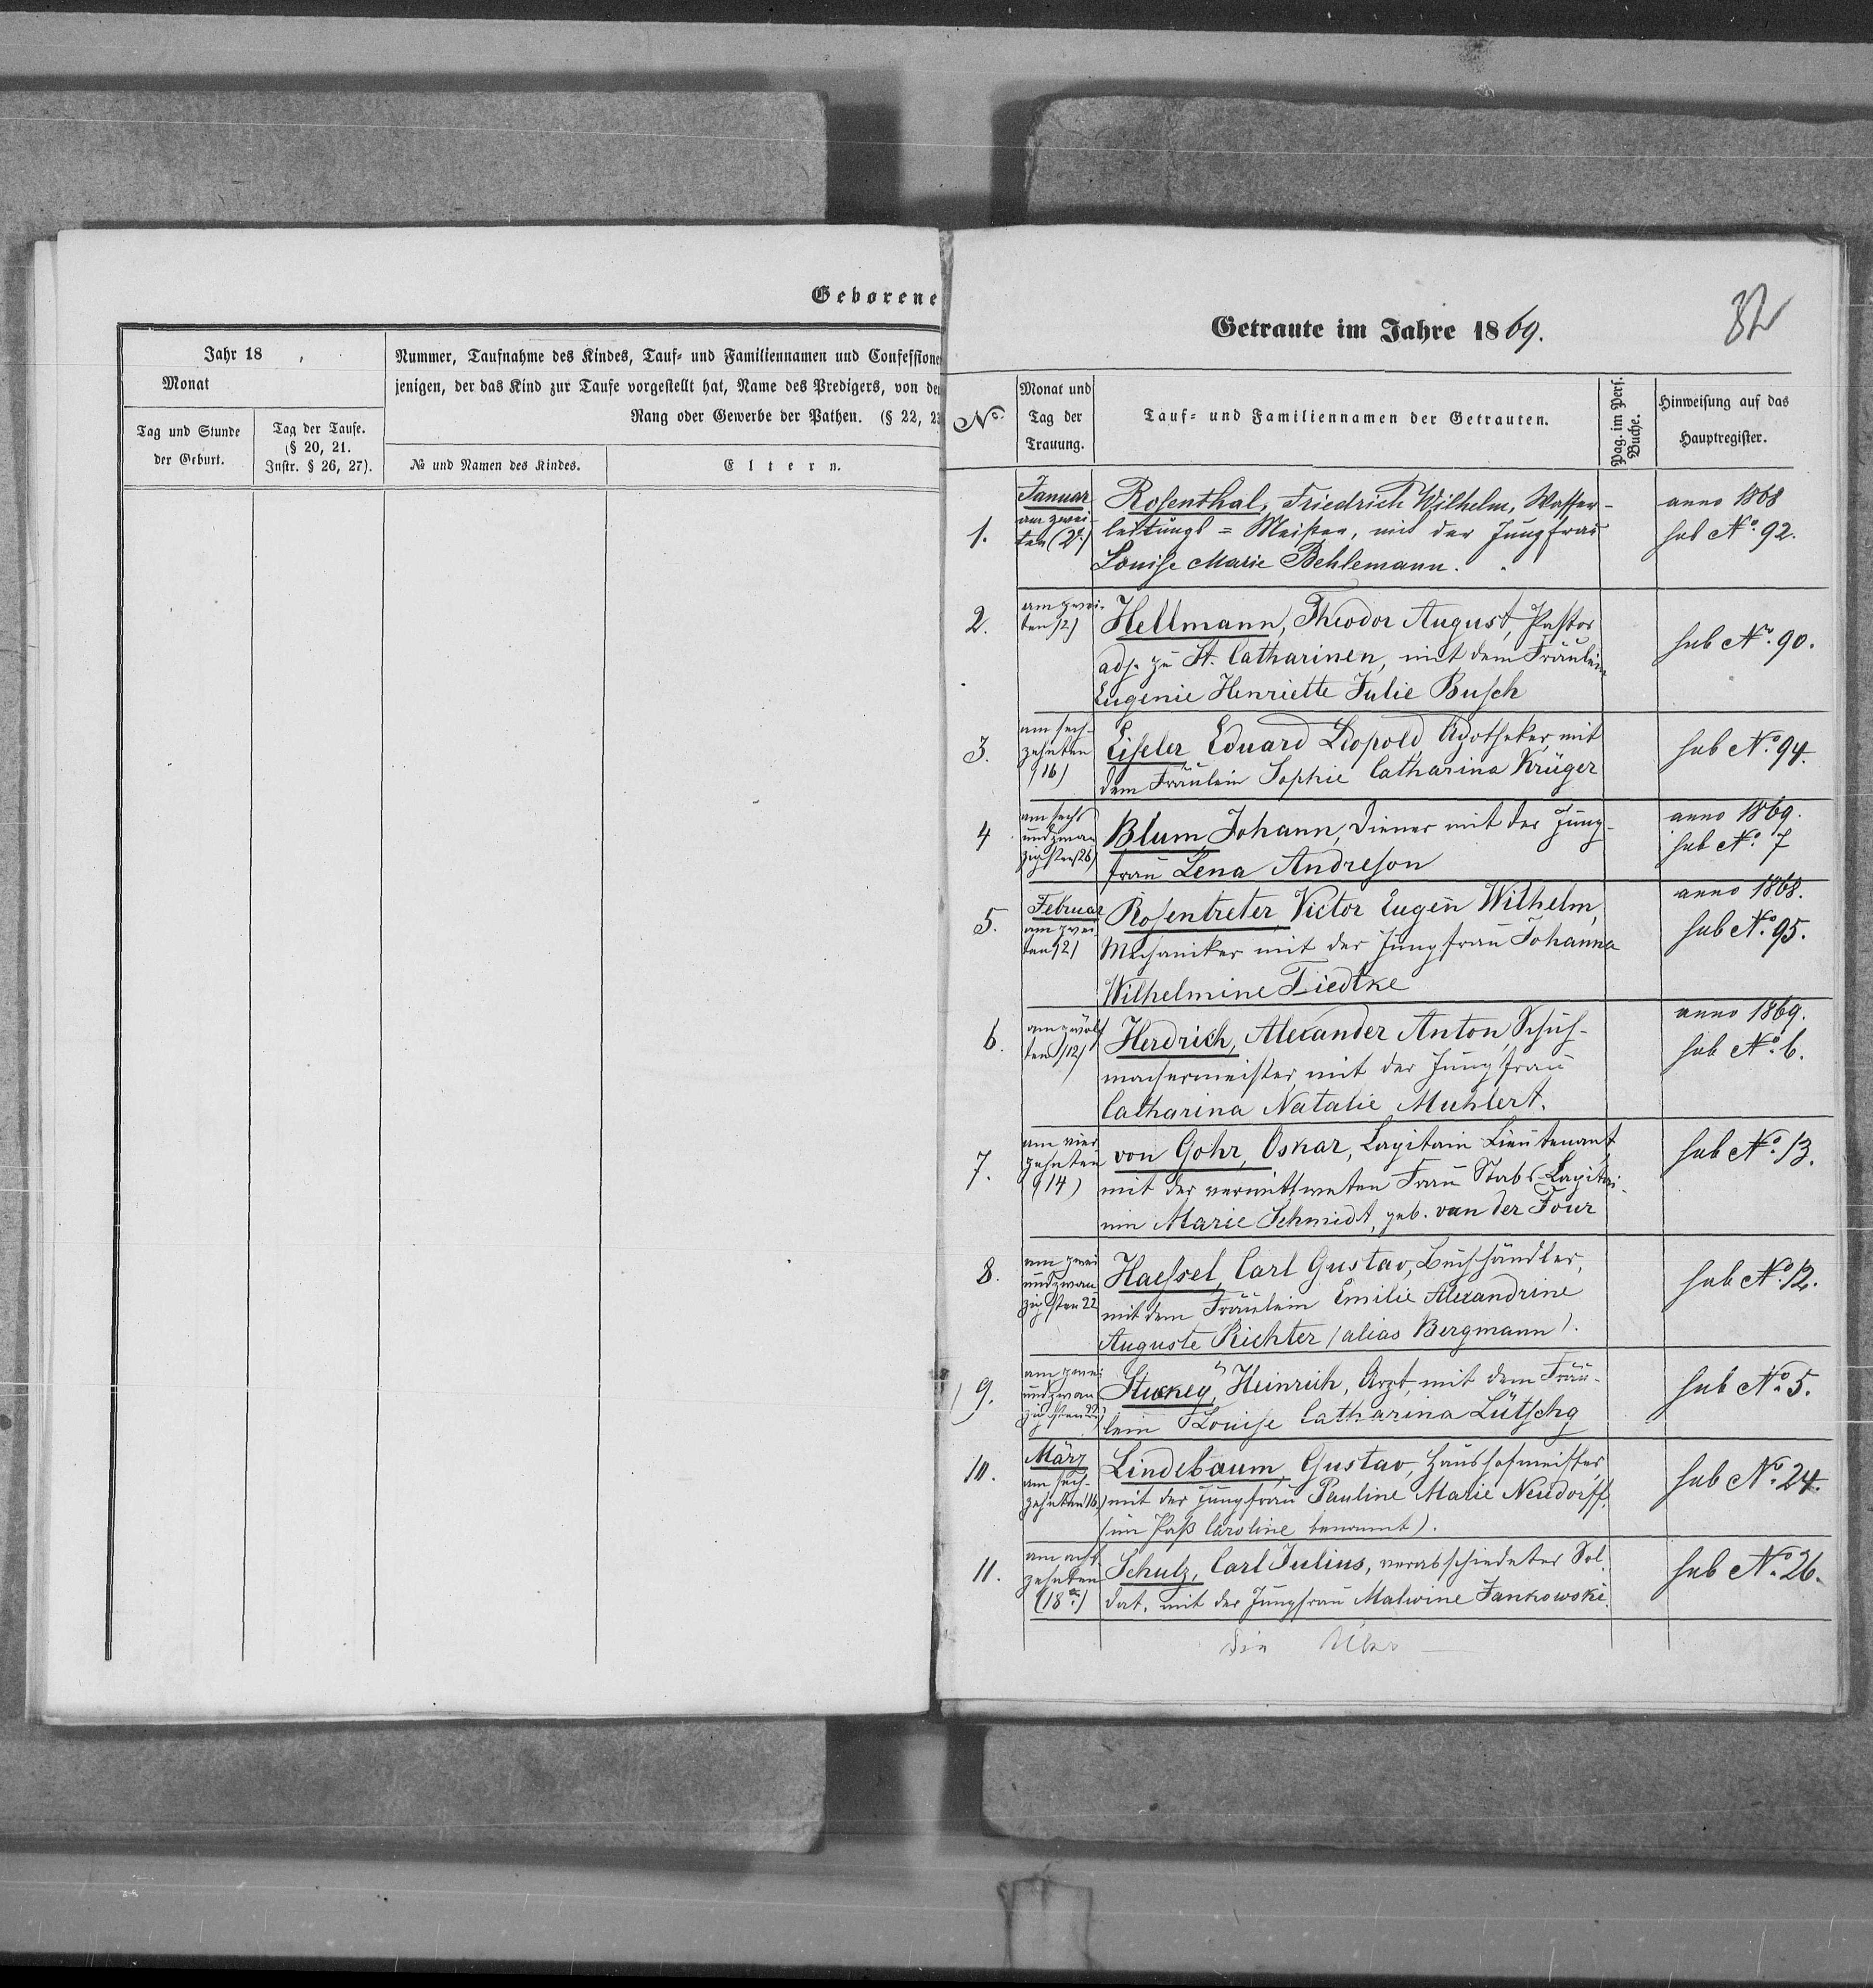 Geborene
Jahr 18 ,
Monat
Tag und Stunde
der Geburt.
Tag der Taufe.
(§ 20, 21.
Instr. § 26, 27).
Nummer, Taufnahme des Kindes, Tauf- und Familiennamen und Confessione
jenigen, der das Kind zur Taufe vorgestellt hat, Name des Predigers, von de
Rang oder Gewerbe der Pathen. (§ 22, 23
№ und Namen des Kindes.
Eltern.
32
Getraute im Jahre 1869.
No.
Monat und
Tag der
Trauung.
Tauf- und Familiennamen der Getrauten.
Pag. im Pers.
Buche.
Hinweisung auf das
Hauptregister.
1.
Januar
am zwei-
ten (2.)
Rosenthal, Friedrich Wilhelm, Wasser-
leitungs = Meister, mit der Jungfrau
Louise Marie Behlemann.
anno 1868
sub No. 92.
2.
am zwei-
ten (2)
Hellmann, Theodor August, Pastor
adj. zu St. Catharinen, mit dem Fräulein
Eugenie Henriette Julie Busch
sub No. 90.
3.
am sech-
zehnten
(16)
Eiseler Eduard Leopold, Apotheker, mit
dem Fräulein Sophie Catharina Krüger
sub No. 94.
4
am sechs
undzwan
zigsten (26)
Blum, Johann, Diener mit der Jung-
frau Lena Andreson
anno 1869.
sub No. 7
5.
Februar
am zwei-
ten (2)
Rosentreter, Victor Eugen Wilhelm,
Mechaniker mit der Jungfrau Johanna
Wilhelmine Tiedtke
anno 1868.
sub No. 95.
6.
am zwölf
ten (12)
Herdrich, Alexander Anton, Schuh-
machermeister, mit der Jungfrau
Catharina Natalie Muhlert.
anno 1869.
sub No. 6.
7.
am vier
zehnten
(14)
von Gohr, Oskar, Capitain Lieutenant
mit der verwittweten Frau Stabs-Capitai-
nin Marie Schmidt, geb. van der Four
sub No. 13.
8.
am zwei
undzwan
zigsten 22
Haessel, Carl Gustav, Buchhändler,
mit dem Fräulein Emilie Alexandrine
Auguste Richter (alias Bergmann).
sub No. 12.
9.
am zwei
undzwan
zigsten 22)
Stuckey, Heinrich, Arzt, mit dem Fräu-
lein Louise Catharina Lütschg
sub No. 5.
10.
März
am sech-
zehnten (16)
Lindebaum, Gustav, Haushofmeister
mit der Jungfrau Pauline Marie Neudorff.
(im Paß Caroline benannt).
sub No. 24.
11.
am acht
zehnten
(18.)
Schulz, Carl Julius, verabschiedeter Sol
dat, mit der Jungfrau Malwine Jankowski.
sub No. 26.